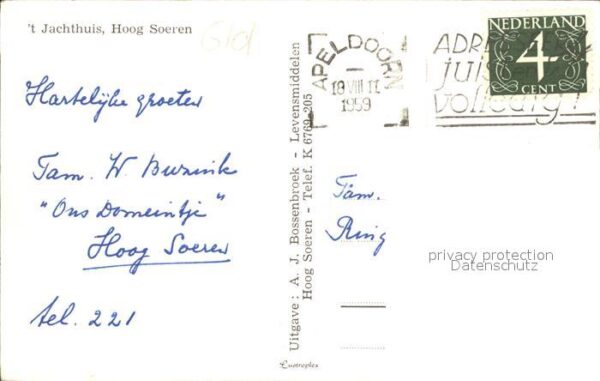 't Jachthuis, Hoog Soeren
Hartelijke groeten
Fam. W. Buzink
"Ons Domeintje"
Hoog Soeren
tel. 221
Uitgave: A. J. Bossenbroek - Levensmiddelen
Hoog Soeren - Telef. K 6769-205
Fam.
Ring
APELDOORN
18 VIII 11
1959
NEDERLAND
4
CENT
juist
volledig!
privacy protection
Datenschutz
Lustreplex